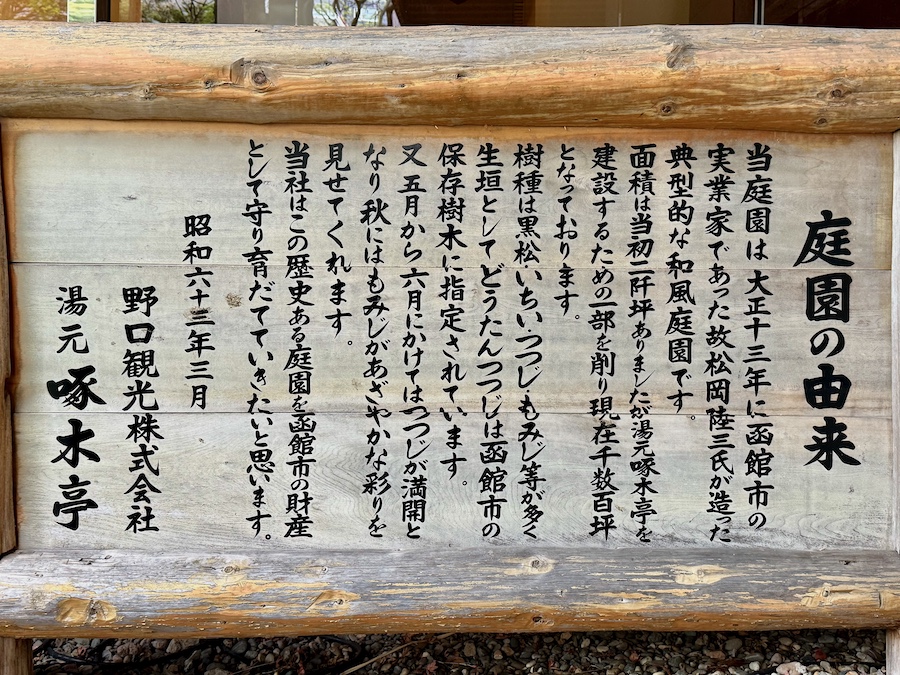 庭園の由来
当庭園は大正十三年に函館市の
実業家であった故松岡陸三氏が造った
典型的な和風庭園です。
面積は当初二阡坪ありましたが湯元啄木亭を
建設するための一部を削り現在千数百坪
となっております。
樹種は黒松・いちい・つつじ・もみじ等が多く
生垣としてどうたんつつじは函館市の
保存樹木に指定されています。
又五月から六月にかけてはつつじが満開と
なり秋にはもみじがあざやかな彩りを
見せてくれます。
当社はこの歴史ある庭園を函館市の財産
として守り育だてていきたいと思います。
昭和六十三年三月
野口観光株式会社
湯元啄木亭